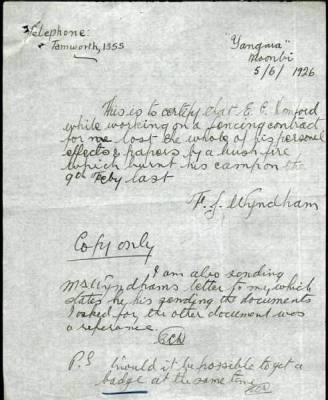 Telephone
Tamworth, 1355
"Yangma"
Moonbi
5/6/1926
This is to certify that E. E.
while working on a fencing contract
for me lost the whole of his personel
effects & papers by a bush fire
which burnt his camp on the
9th Feby last
F. S. Wyndham
Copy only
I am also sending
Mr Wyndhams letter to my which
states he his sending the documents
I asked for the other document was
a referance.
P.S Would it be possible to get a
badge at the same time